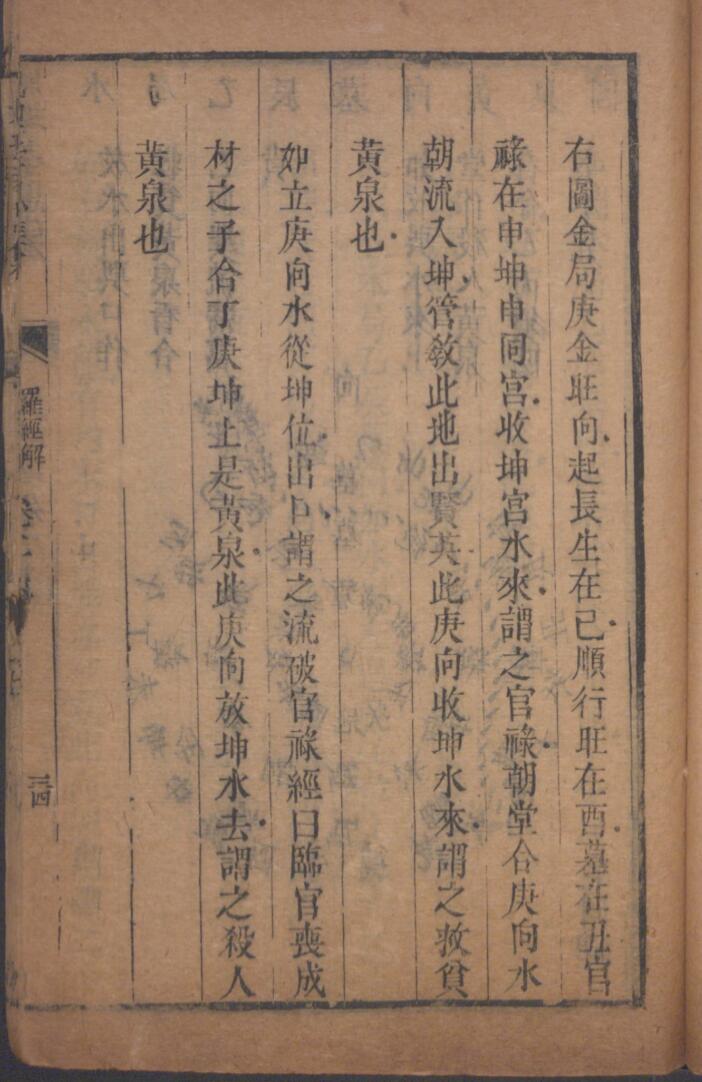 右圖金局庚金旺向起長生在巳順行旺在酉墓在丑官
祿在申坤申同宫收坤宫水來謂之官祿朝堂合庚向水
朝流入坤管敎此地出賢英此庚向收坤水來謂之救貧
黄泉也
如立庚向水從坤位出口謂之流破官祿經曰臨官喪成
材之子合丁庚坤上是黄泉此庚向放坤水去謂之殺人
黄泉也
羅經解
三四